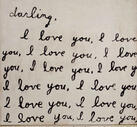 darling,
I love you, I love
you, I love you, I love
you, I love you, I love you
I love you, I love you,
I love you, I love you
I love you, I love you